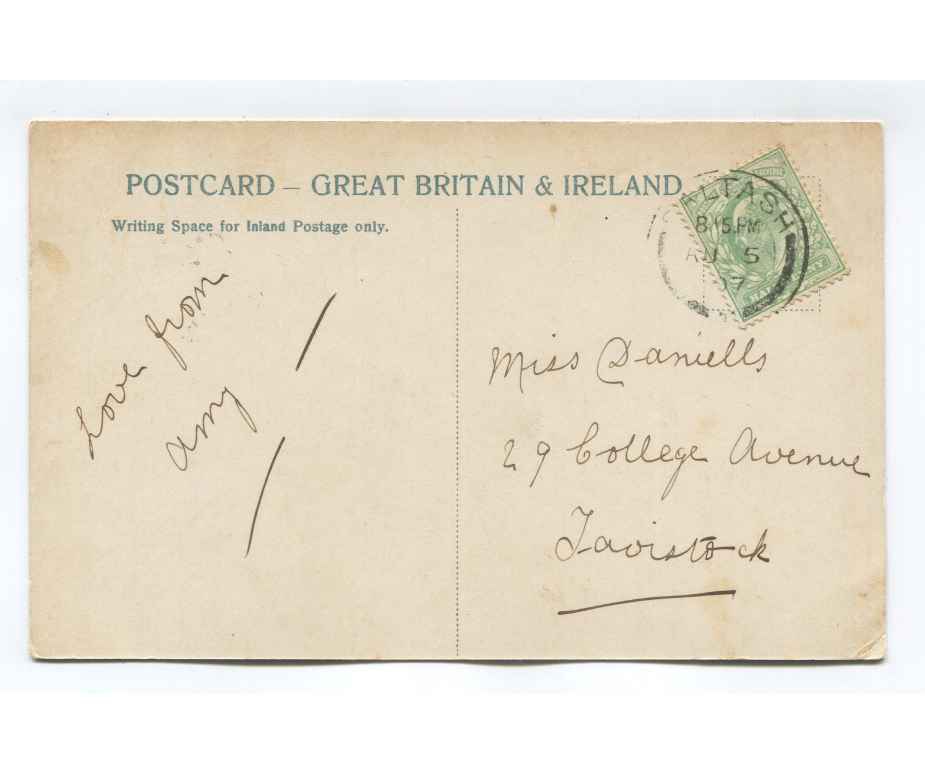 POSTCARD – GREAT BRITAIN & IRELAND.
Writing Space for Inland Postage only.
ALTASH
8 15.PM
5
07
Love from
amy
Miss Daniells
29 College Avenue
Tavistock